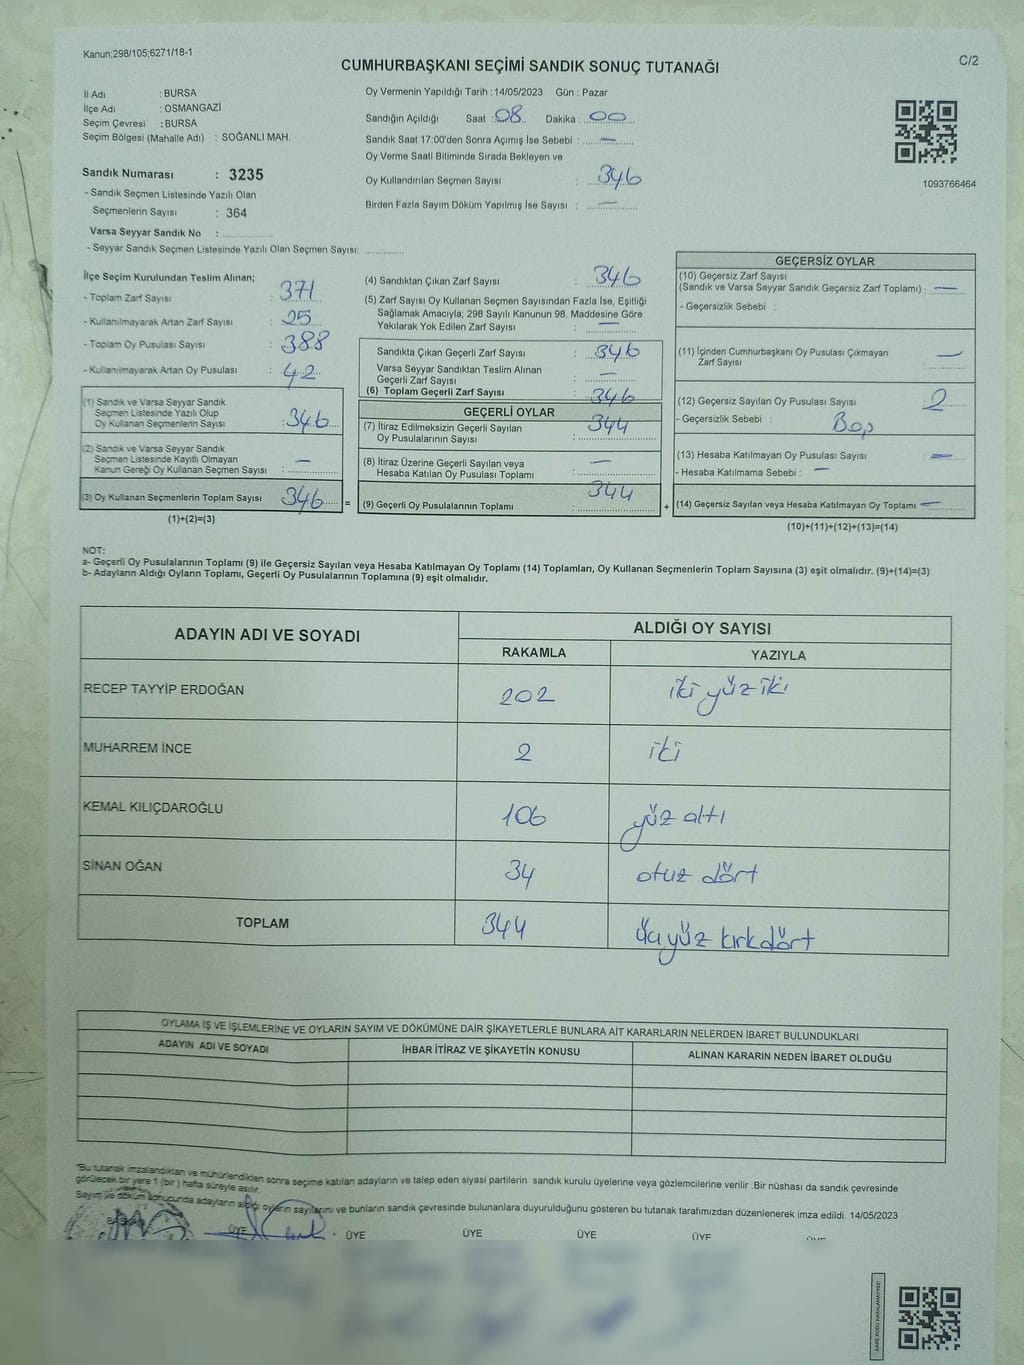 Kanun;298/105;6271/18-1
C/2
CUMHURBAŞKANI SEÇİMİ SANDIK SONUÇ TUTANAĞI
İl Adı : BURSA
İlçe Adı : OSMANGAZİ
Seçim Çevresi : BURSA
Seçim Bölgesi (Mahalle Adı) : SOĞANLI MAH.
Oy Vermenin Yapıldığı Tarih :14/05/2023 Gün : Pazar
Sandığın Açıldığı Saat : 08 Dakika : 00
Sandık Saat 17:00'den Sonra Açımış İse Sebebi : —
Oy Verme Saati Bitiminde Sırada Bekleyen ve
Oy Kullandırılan Seçmen Sayısı : 346
Birden Fazla Sayım Döküm Yapılmış İse Sayısı : —
1093766464
Sandık Numarası : 3235
- Sandık Seçmen Listesinde Yazılı Olan
Seçmenlerin Sayısı : 364
Varsa Seyyar Sandık No :
- Seyyar Sandık Seçmen Listesinde Yazılı Olan Seçmen Sayısı:
İlçe Seçim Kurulundan Teslim Alınan;
- Toplam Zarf Sayısı : 371
- Kullanılmayarak Artan Zarf Sayısı : 25
- Toplam Oy Pusulası Sayısı : 388
- Kullanılmayarak Artan Oy Pusulası : 42
(1) Sandık ve Varsa Seyyar Sandık
Seçmen Listesinde Yazılı Olup
Oy Kullanan Seçmenlerin Sayısı : 346
(2) Sandık ve Varsa Seyyar Sandık
Seçmen Listesinde Kayıtlı Olmayan
Kanun Gereği Oy Kullanan Seçmen Sayısı : —
(3) Oy Kullanan Seçmenlerin Toplam Sayısı 346 =
(1)+(2)=(3)
(4) Sandıktan Çıkan Zarf Sayısı : 346
(5) Zarf Sayısı Oy Kullanan Seçmen Sayısından Fazla İse, Eşitliği
Sağlamak Amacıyla; 298 Sayılı Kanunun 98. Maddesine Göre
Yakılarak Yok Edilen Zarf Sayısı : —
Sandıkta Çıkan Geçerli Zarf Sayısı : 346
Varsa Seyyar Sandıktan Teslim Alınan
Geçerli Zarf Sayısı : —
(6) Toplam Geçerli Zarf Sayısı : 346
GEÇERLİ OYLAR
(7) İtiraz Edilmeksizin Geçerli Sayılan
Oy Pusulalarının Sayısı : 344
(8) İtiraz Üzerine Geçerli Sayılan veya
Hesaba Katılan Oy Pusulası Toplamı : —
(9) Geçerli Oy Pusulalarının Toplamı : 344 +
GEÇERSİZ OYLAR
(10) Geçersiz Zarf Sayısı
(Sandık ve Varsa Seyyar Sandık Geçersiz Zarf Toplamı) : —
- Geçersizlik Sebebi :
(11) İçinden Cumhurbaşkanı Oy Pusulası Çıkmayan
Zarf Sayısı : —
(12) Geçersiz Sayılan Oy Pusulası Sayısı : 2
- Geçersizlik Sebebi : Boş
(13) Hesaba Katılmayan Oy Pusulası Sayısı : —
- Hesaba Katılmama Sebebi : —
(14) Geçersiz Sayılan veya Hesaba Katılmayan Oy Toplamı —
(10)+(11)+(12)+(13)=(14)
NOT:
a- Geçerli Oy Pusulalarının Toplamı (9) ile Geçersiz Sayılan veya Hesaba Katılmayan Oy Toplamı (14) Toplamları, Oy Kullanan Seçmenlerin Toplam Sayısına (3) eşit olmalıdır. (9)+(14)=(3)
b- Adayların Aldığı Oyların Toplamı, Geçerli Oy Pusulalarının Toplamına (9) eşit olmalıdır.
ADAYIN ADI VE SOYADI ALDIĞI OY SAYISI
RAKAMLA YAZIYLA
RECEP TAYYİP ERDOĞAN 202 iki yüz iki
MUHARREM İNCE 2 iki
KEMAL KILIÇDAROĞLU 106 yüz altı
SİNAN OĞAN 34 otuz dört
TOPLAM 344 üçyüz kırkdört
OYLAMA İŞ VE İŞLEMLERİNE VE OYLARIN SAYIM VE DÖKÜMÜNE DAİR ŞİKAYETLERLE BUNLARA AİT KARARLARIN NELERDEN İBARET BULUNDUKLARI
ADAYIN ADI VE SOYADI İHBAR İTİRAZ VE ŞİKAYETİN KONUSU ALINAN KARARIN NEDEN İBARET OLDUĞU
"Bu tutanak imzalandıktan ve mühürlendikten sonra seçime katılan adayların ve talep eden siyasi partilerin sandık kurulu üyelerine veya gözlemcilerine verilir .Bir nüshası da sandık çevresinde
görülecek bir yere 1 (bir ) hafta süreyle asılır.
Sayım ve döküm sonucunda adayların aldığı oyların sayılarını ve bunların sandık çevresinde bulunanlara duyurulduğunu gösteren bu tutanak tarafımızdan düzenlenerek imza edildi. 14/05/2023
BAŞKAN ÜYE ÜYE ÜYE ÜYE ÜYE